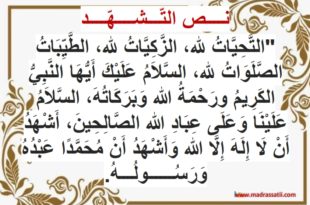 نــص التـَّـشـــهُّـــد
"التَّحِيَّاتُ لله، الزَّكِيَّاتُ لله، الطَّيِّبَاتُ
الصَّلَوَاتُ لله، السَّلَامُ عَلَيْكَ أَيُّهَا النَّبِيُّ
الكَرِيمُ وَرَحْمَةُ الله وَبَرَكَاتُهَ، السَّلَامُ
عَلَيْنَا وَعَلَى عِبَادِ الله الصَّالِحِينَ، أَشْهَدُ
أَنْ لَا إِلَهَ إِلَّا الله وَأَشْهَدُ أَنْ مُحَمَّدًا عَبْدُهُ
وَرَسُــــولُـــهُ.
www.madrassatii.com